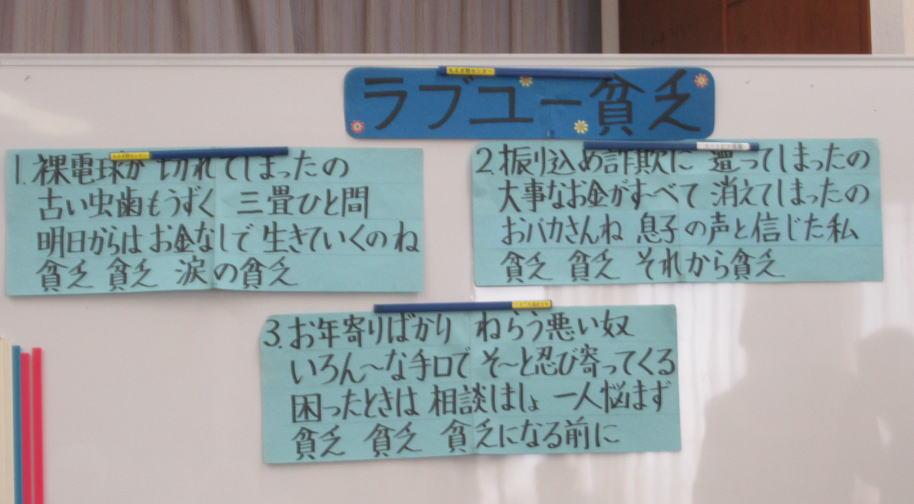 ラブユー貧乏
1. 裸電球が 切れてしまったの
古い虫歯もうずく 三畳ひと間
明日からは お金なしで 生きていくのね
貧乏 貧乏 涙の貧乏
2. 振り込め詐欺に 遭ってしまったの
大事なお金がすべて 消えてしまったの
おバカさんね 息子の声と信じた私
貧乏 貧乏 それから貧乏
3. お年寄りばかり ねらう悪い奴
いろん〜な手口で そ〜と忍び寄ってくる
困ったときは 相談はしょ 一人悩まず
貧乏 貧乏 貧乏になる前に